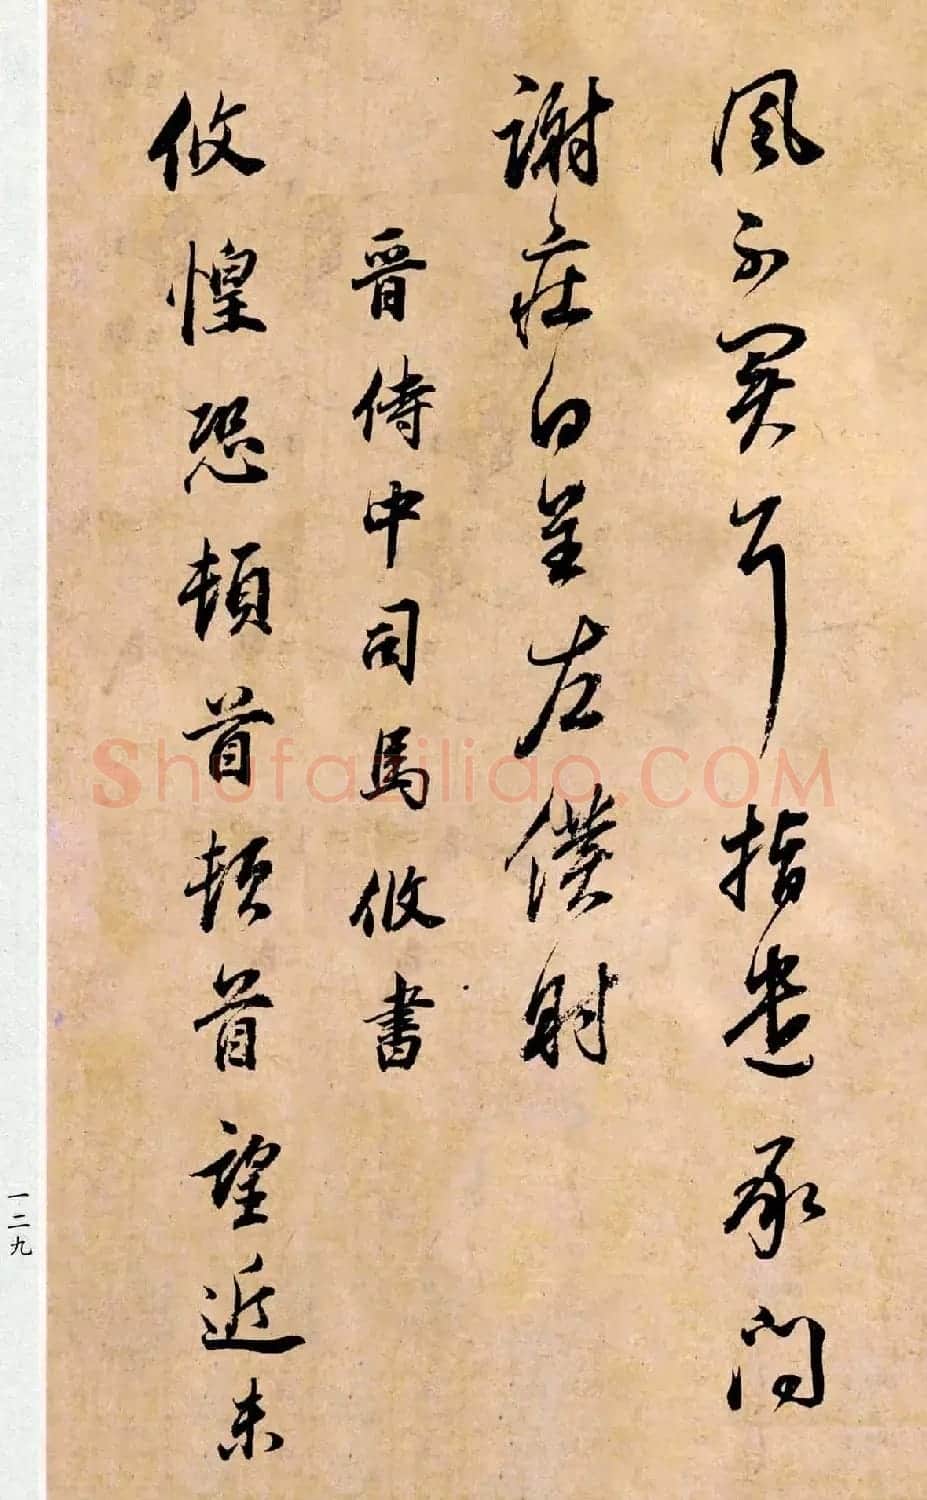 風不耳指遣承問
謝莊白呈左僕射
晉侍中司馬攸書
攸惶恐頓首頓首望近未
Shufaziliao.COM
一二九